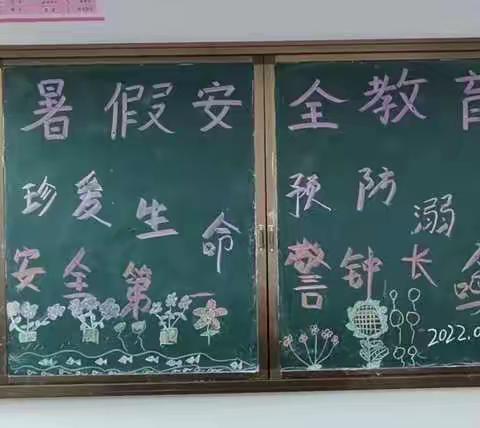 暑假安全教育
珍爱生命
安全第一
预防溺
警钟长鸣
2022.0